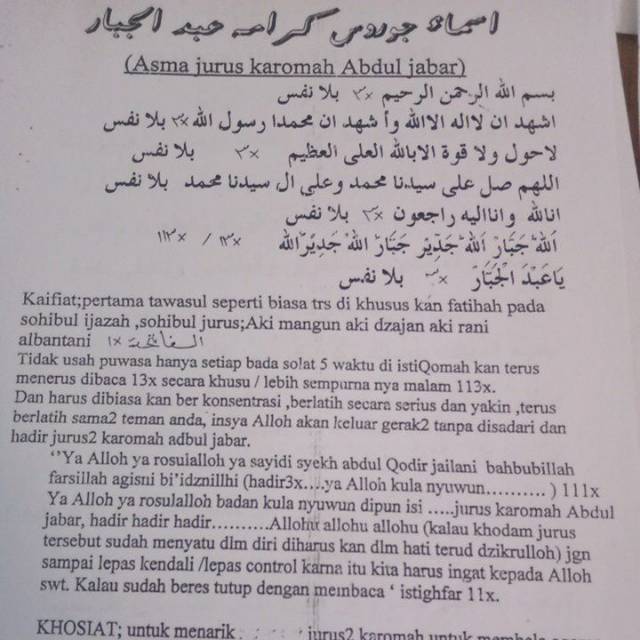 اسماء جوروس كرامه عبد الجبار
(Asma jurus karomah Abdul jabar)
بسم الله الرحمن الرحيم ٣x بلا نفس
اشهد ان لااله الاالله وأ شهد ان محمدا رسول الله ٣x بلا نفس
لاحول ولا قوة الابالله العلى العظيم ٣x بلا نفس
اللهم صل على سيدنا محمد وعلى ال سيدنا محمد بلا نفس
انالله وانااليه راجعون ٣x بلا نفس
الله جَبَارْ الله جَدِيْر جَبَارْ الله جَدِيْرْالله ١٣x / ١١٣x
يَاعَبْدَ الْجَبَارْ ٣x بلا نفس
Kaifiat;pertama tawasul seperti biasa trs di khusus kan fatihah pada
sohibul ijazah ,sohibul jurus;Aki mangun aki dzajan aki rani
albantani الفاتحة ١x
Tidak usah puwasa hanya setiap bada solat 5 waktu di istiQomah kan terus
menerus dibaca 13x secara khusu / lebih sempurna nya malam 113x.
Dan harus dibiasa kan ber konsentrasi ,berlatih secara serius dan yakin ,terus
berlatih sama2 teman anda, insya Alloh akan keluar gerak2 tanpa disadari dan
hadir jurus2 karomah adbul jabar.
‘’Ya Alloh ya rosulalloh ya sayidi syekh abdul Qodir jailani bahbubillah
farsillah agisni bi’idznillhi (hadir3x....ya Alloh kula nyuwun.......... ) 111x
Ya Alloh ya rosulalloh badan kula nyuwun dipun isi .....jurus karomah Abdul
jabar, hadir hadir hadir..........Allohu allohu allohu (kalau khodam jurus
tersebut sudah menyatu dlm diri diharus kan dlm hati terud dzikrulloh) jgn
sampai lepas kendali /lepas control karna itu kita harus ingat kepada Alloh
swt. Kalau sudah beres tutup dengan membaca ‘ istighfar 11x.
KHOSIAT; untuk menarik jurus2 karomah untuk